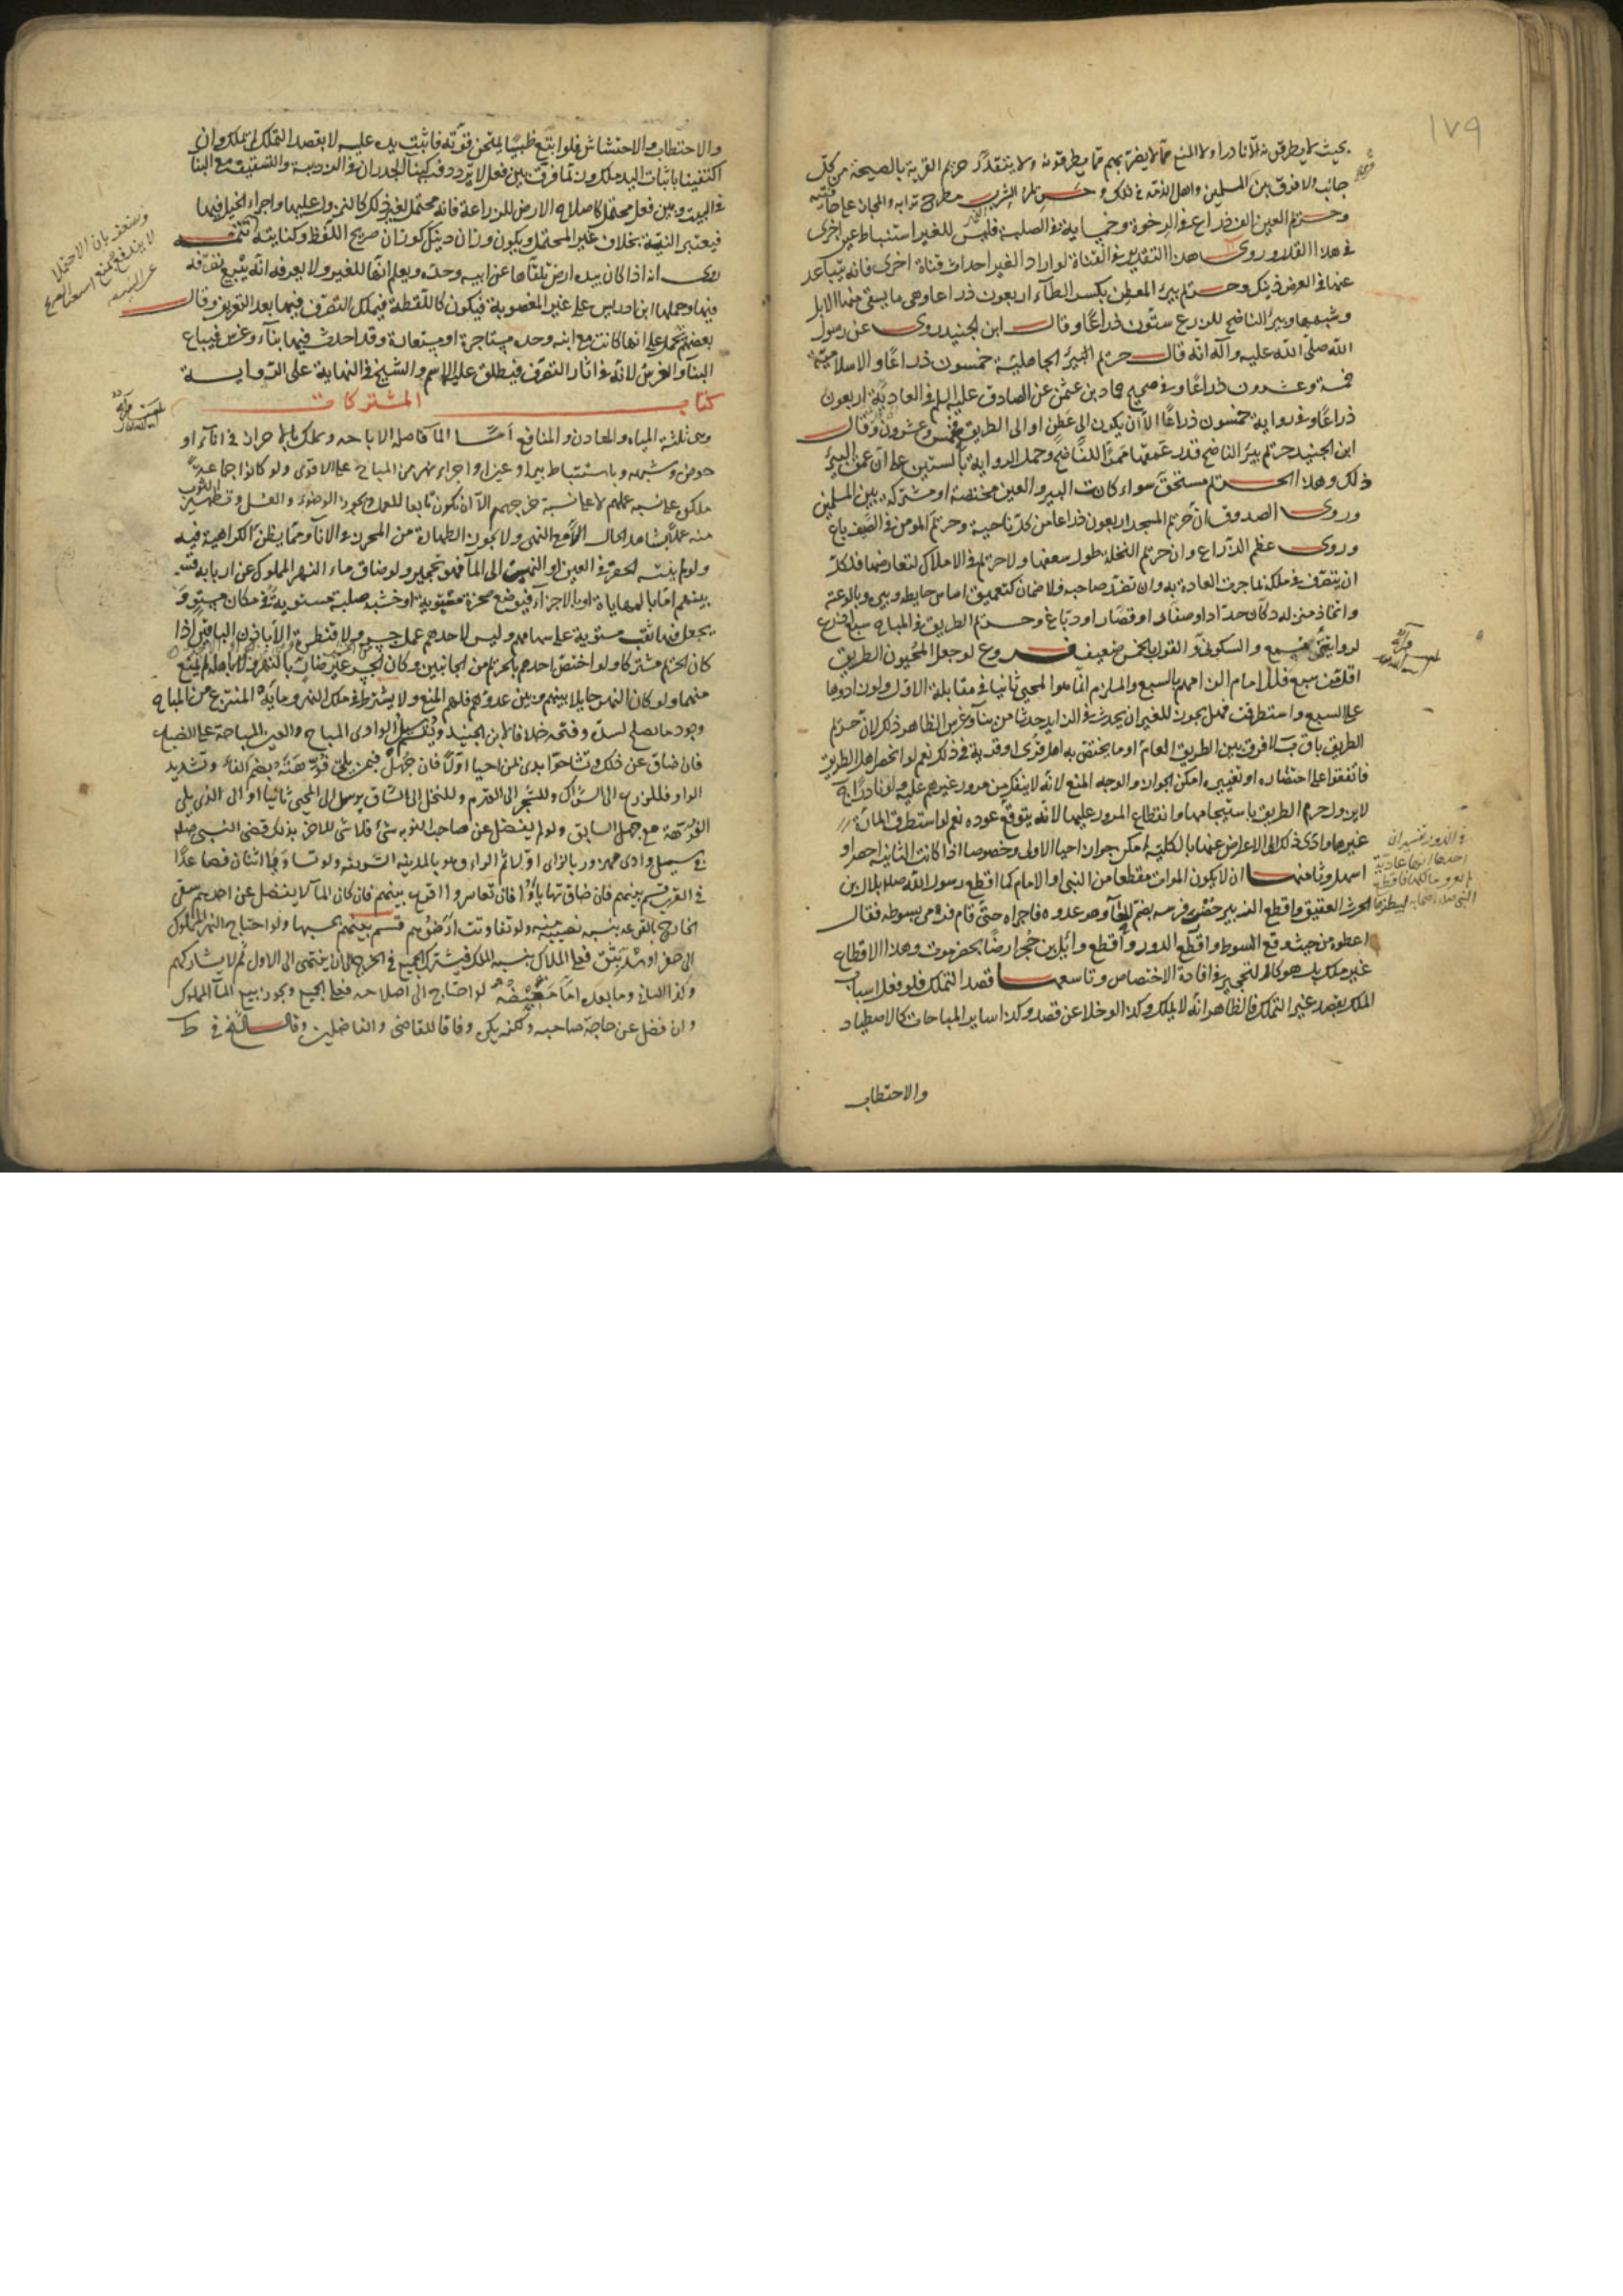 ١٧٩
بحيث لا يطرقونه الا نادرا ولا المنع مما لا يضر بهم مما يطرقونه ولا يتقدر حريم القرية بالصيحة من كل
جانب ولا فرق بين المسلمين واهل الذمة في ذلك و حريم الشرب مطرح ترابه والمجاز على حافتيه
وحريم العين الف ذراع في الرخوة وخمسماية في الصلبة فليس للغير استنباط عين اخرى
في هذا القدر وروى هذا التقدير في القناة لو اراد الغير احداث قناة اخرى فانه يتباعد
عنها في العرض ذينك وحريم بئر المعطن بكسر الطاء اربعون ذراعا وهي ما يستقى منها الابل
وشبهها وبئر الناضح للزرع ستون ذراعا وقال ابن الجنيد روى عن رسول
الله صلى الله عليه وآله انه قال حريم البئر الجاهلية خمسون ذراعا والاسلامية
خمسة وعشرون ذراعا وفي صحيح حماد بن عثمن عن الصادق عليه السلم في العادية اربعون
ذراعا وفي رواية خمسون ذراعا الا ان يكون الى عطن او الى الطريق فخمس وعشرون وقال
ابن الجنيد حريم بئر الناضح قدر عمقها ممرا للناضح وحمل الرواية بالستين على ان عمق البئر
ذلك وهذا الحريم مستحق سواء كانت البئر والعين مختصة او مشتركة بين المسلمين
وروى الصدوق ان حريم المسجد اربعون ذراعا من كل ناحية وحريم المومن في الصيف باع
وروى عظم الذراع وان حريم النخلة طول سعفها ولا حريم في الاملاك لتعارضها فلكل
ان يتصرف في ملكه بما جرت العادة به وان تضرر صاحبه فلا ضمان كتعميق اساس حايطه وبئر وبالوعته
واتخاذ منزله دكان حداد او صفار او قصار او دباغ وحريم الطريق في المباح سبع اذرع
لروايتي مسمع والسكوني والقول بالخمس ضعيف فروع لو جعل المحيون الطريق
اقل من سبع فللامام الزامهم بالسبع والملزم انما هو المحيي ثانيا في مقابلة الاول ولو زادوها
على السبع واستطرقت فهل يجوز للغير ان يحدث في الزايد حدثا من بناء وغرس الظاهر ذلك لان حريم
الطريق باق ب لا فرق بين الطريق العام او ما يختص به اهل قرى او قرية في ذلك نعم لو انحصر اهل الطريق
فاتفقوا على اختصاره او تغييره امكن الجواز والوجه المنع لانه لا ينفك من مرور غيرهم عليه ولو نادرا ج
لا يزول حريم الطريق باستيجامها وانقطاع المرور عليها لانه يتوقع عوده نعم لو استطرق المارة
غيرها وادى ذلك الى الاعراض عنها بالكلية امكن جواز احيا الاولى وخصوصا اذا كانت الثانية اخصر او
اسهل وثامنها ان لا يكون الموات مقطعا من النبي او الامام كما اقطع رسول الله صلعم بلال بن
الحرث العقيق واقطع الزبير حضر فرسه بضم الحاء وهو عدوه فاجراه حتى قام فرمى بسوطه فقال
اعطوه من حيث وقع السوط واقطع الدور واقطع وائل بن حجر ارضا بحضرموت وهذا الاقطاع
غير ملك بل هو كالتحجير في افادة الاختصاص وتاسعها قصد التملك فلو فعل اسباب
الملك بقصد غير التملك فالظاهر انه لا يملك وكذا لو خلا عن قصد وكذا ساير المباحات كالاصطياد
والاحتطاب
في الدور تفسيران
احدهما انها عادية
لم يعرف مالكها فاقطعها
النبي صلعم اصحابه
والاحتطاب والاحتشاش فلو اتبع ظبيا ليمتحن قوته فاثبت يده عليه لا بقصد التملك لم يملك وان
اكتفينا باثبات اليد ملك وربما فرق بين فعل لا تردد فيه كبنا الجدران في الدربة والتسقيف مع البنا
في البيت وبين فعل محتمل كاصلاح الارض للزراعة فانه محتمل لغير ذلك كالنزول عليها واجراء الخيل فيها
فيعتبر النية بخلاف غير المحتمل ويكون وزان ذينك كوزان صريح اللفظ وكنايته تتمة
روى انه اذا كان بيده ارض تلقاها عن ابيه وجده ويعلم انها للغير ولا يعرفه انه يبيع تصرفه
فيها وحملها ابن ادريس على غير المغصوبة فيكون كاللقطة فيملك التصرف فيها بعد التعريف وقال
بعضهم تحمل على انها كانت مع ابيه وجده مستاجرة او مستعارة وقد احدث فيها بناء وغرس فيباع
البناء والغرس لانه في اثار التصرف فيطلق عليه الاسم والشيخ في النهاية على الرواية
كتاب المشتركات
وهي ثلثة المياه والمعادن والمنافع اما الماء فاصله الاباحه ويملك بالاحراز في اناء او
حوض وشبهه وباستنباط بير او عين او اجراء نهر من المباح على الاقوى ولو كانوا جماعة
ملكوا على نسبة عملهم لا على نسبة خرجهم الا ان يكون تابعا للعمل ويجوز الوضوء والغسل وتطهير الثوب
منه عملا بشاهد الحال الا مع النهى ولا يجوز الطهارة من المحرز في الانآ ومما يظن الكراهية فيه
ولو لم ينته الحفر في العين او النهر الى الماء فهو تحجير ولو ضاق ماء النهر المملوك عن اربابه قسم
بينهم اما بالمهاياة او بالاجزاء فيوضع صخرة مستوية او خشبة صلبة مستوية في مكان مستو و
يجعل فيها ثقب مستوية على سهامهم وليس لاحدهم عمل جسر ولا قنطرة الا باذن الباقين اذا
كان الحريم مشتركا ولو اختص احدهم بالحريم من الجانبين وكان الجسر غير ضار بالنهر ولا باهله لم يمنع
منهما ولو كان النهر حايلا بينهم وبين عدوهم فلهم المنع ولا يشترط في ملك النهر وما يه المنتزع من المباح
وجود ما يصلح لسده وفتحه خلافا لابن الجنيد ويقسم سيل الوادي المباح والعين المباحة على الضياع
فان ضاق عن ذلك وتشاحوا بدئ بمن احيا اولا فان جهل فبمن يلي فوهته بضم الفاء وتشديد
الواو فللزرع الى الشراك وللشجر الى القدم وللنخل الى الساق ثم يرسل الى المحيي ثانيا او الى الذي يلي
الفوهة مع جهل السابق ولو لم يفضل عن صاحب النوبة شئ فلا شئ للاخر بذلك قضى النبي صلعم
في سيل وادي مهزور بالزاى اولا ثم الراء وهو بالمدينة الشريفه ولو تساوقا اثنان فصاعدا
في القرب قسم بينهم فان ضاق تهايأوا فان تعاسروا اقرع بينهم فان كان الماء لا يفضل عن احدهم سقى
الخارج بالقرعة بنسبة نصيبه ولو تفاوتت ارضوهم قسم بينهم بحسبها ولو احتاج النهر المملوك
الى حفر او سد بثق فعلى الملاك بنسبة الملك فيشترك الجميع في الخرج الى ان ينتهى الى الاول ثم لا يشاركهم
وكذا الثاني وما بعده اما مغيضه لو احتاج الى اصلاحه فعلى الجميع ويجوز بيع الماء المملوك
وان فضل عن حاجة صاحبه ولكنه يكره وفاقا للقاضى والفاضلين وقال الشيخ في ط
وضعف بان الاحتمال
لا يندفع